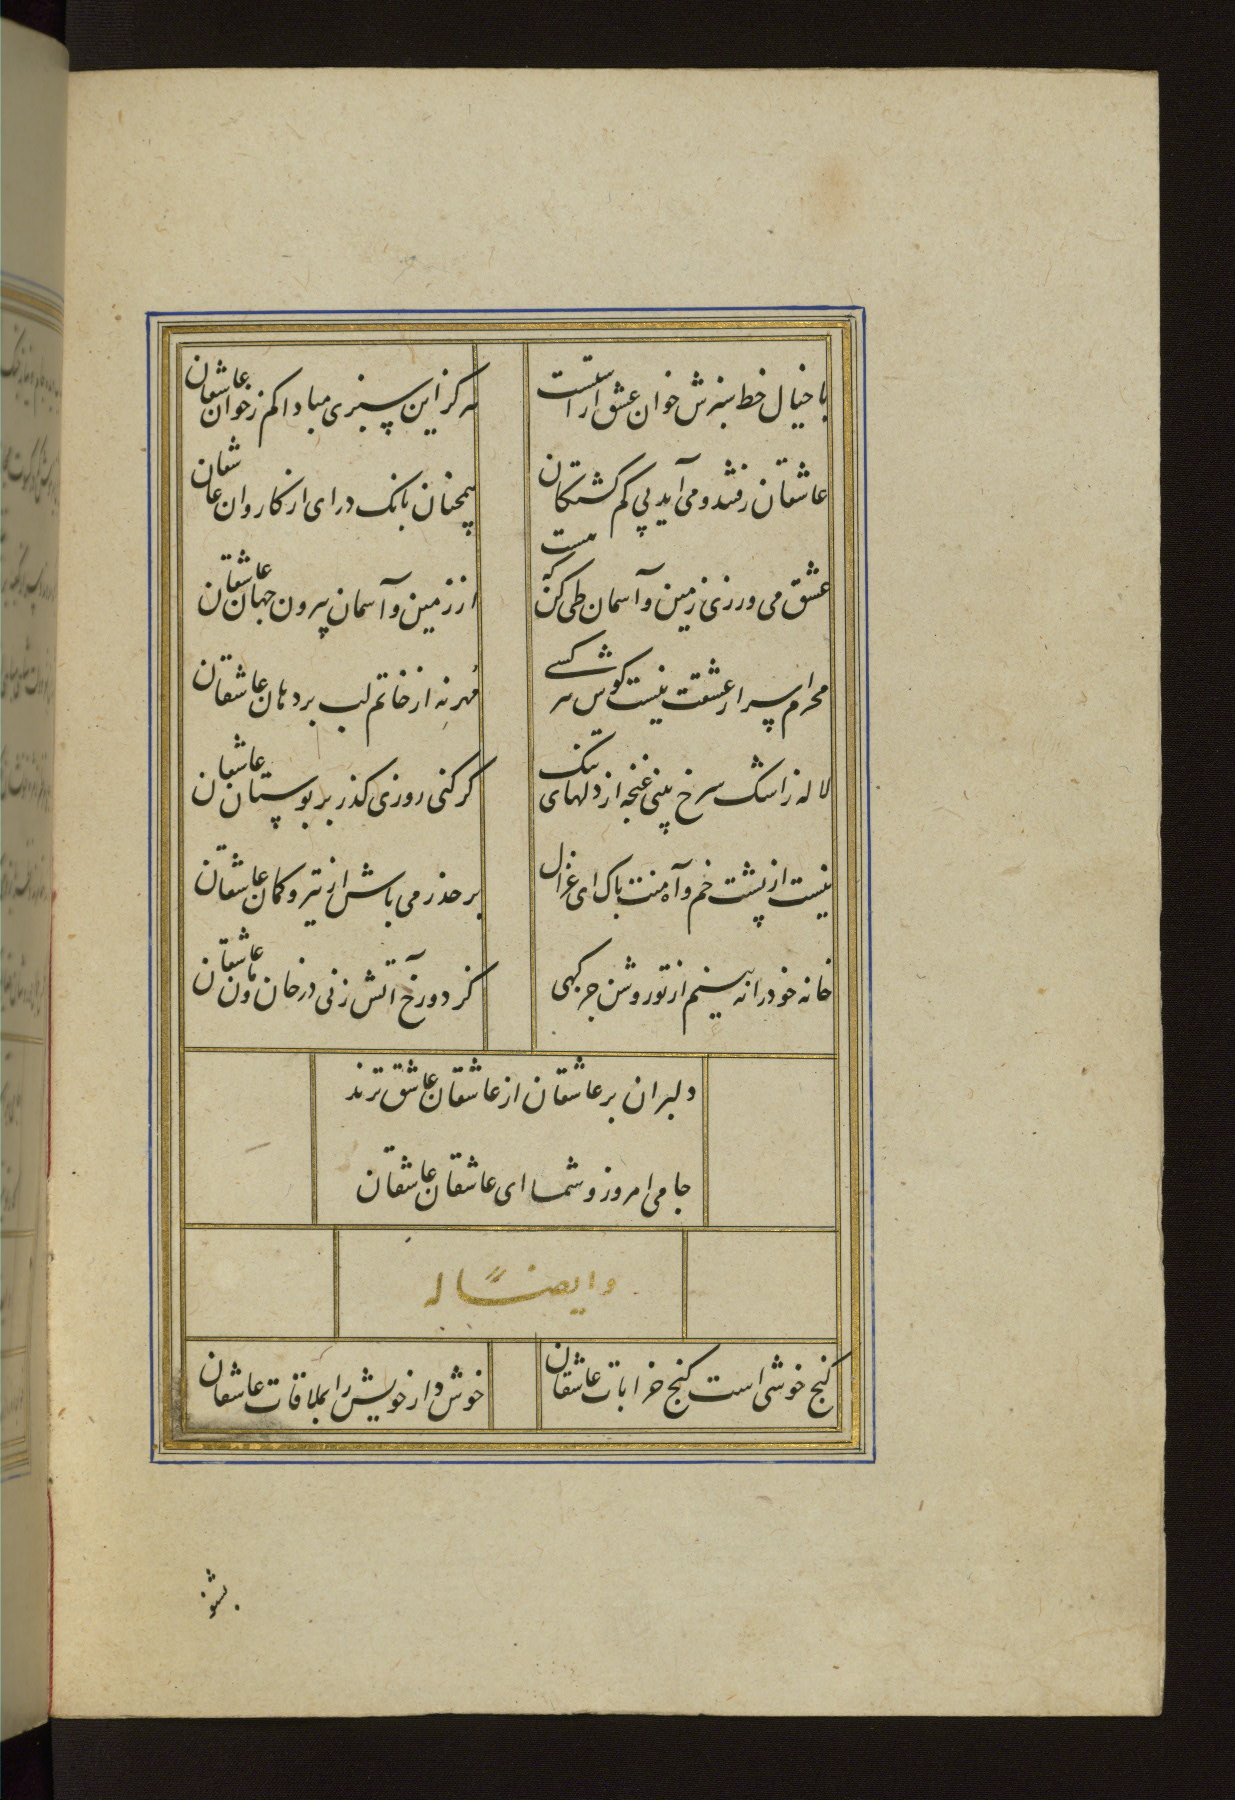 با خیال خط سبزش خوان عشق آراستست
که کز این سبزی مبادا کم ز خوان عاشقان
عاشقان رفتند و می آید پی کم کشتکان
همچنان بانک درای از کاروان عاشقان
عشق می ورزی زمین و آسمان طی کن که هست
از زمین و آسمان بیرون جهان عاشقان
محرم اسرار عشقت نیست کوش هر کسے
مهر نه از خاتم لب بر دهان عاشقان
لاله ز اشک سرخ بینی غنچه از دلهای تنک
کر کنی روزی کذر بر بوستان عاشقان
نیست از پشت خم و آه منت باک ای غزال
بر حذر می باش از تیر و کمان عاشقان
خانه خود را نه بینم از تو روشن جز کهی
کز دو رخ آتش زنی در خان و مان عاشقان
دلبران بر عاشقان از عاشقان عاشق ترند
جامی امروز و شما ای عاشقان عاشقان
وایضاً له
کنج خوشی است کنج خرابات عاشقان
خوش دار خویش را بملاقات عاشقان
بشنو